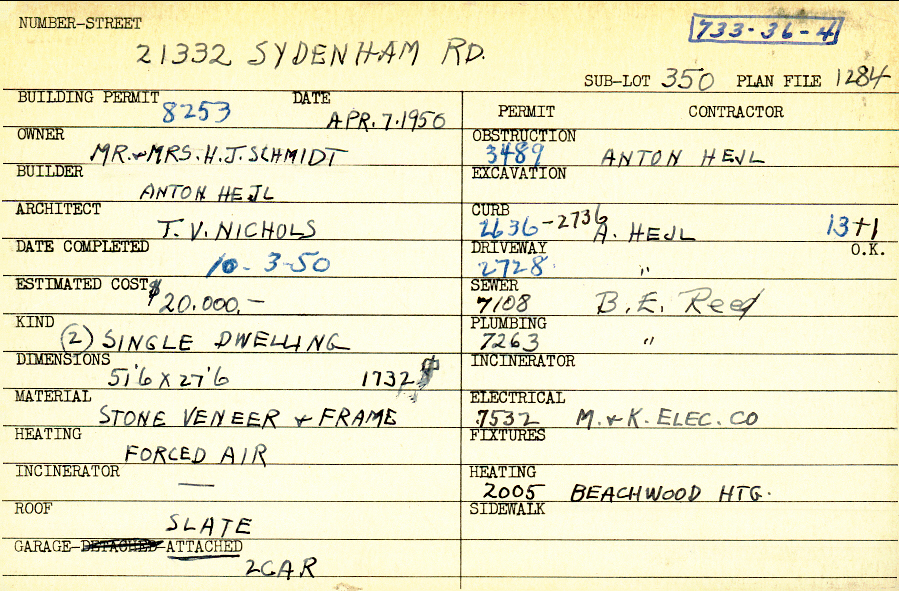 NUMBER-STREET
733-36-4
21332 SYDENHAM RD.
SUB-LOT 350 PLAN FILE 1284
BUILDING PERMIT DATE
8253 APR. 7. 1950
OWNER
MR. & MRS. H. J. SCHMIDT
BUILDER
ANTON HEJL
ARCHITECT
T. V. NICHOLS
DATE COMPLETED
10-3-50
ESTIMATED COST
$20.000.—
KIND
(2) SINGLE DWELLING
DIMENSIONS
51'6 X 27'6 1732
MATERIAL
STONE VENEER & FRAME
HEATING
FORCED AIR
INCINERATOR
—
ROOF
SLATE
GARAGE-DETACHED-ATTACHED
2 CAR
PERMIT CONTRACTOR
OBSTRUCTION
3489 ANTON HEJL
EXCAVATION
CURB
2636-2736 A. HEJL 13+1
DRIVEWAY O.K.
2728 "
SEWER
7108 B. E. Reed
PLUMBING
7263 "
INCINERATOR
ELECTRICAL
7532 M. & K. ELEC. CO
FIXTURES
HEATING
2005 BEACHWOOD HTG.
SIDEWALK